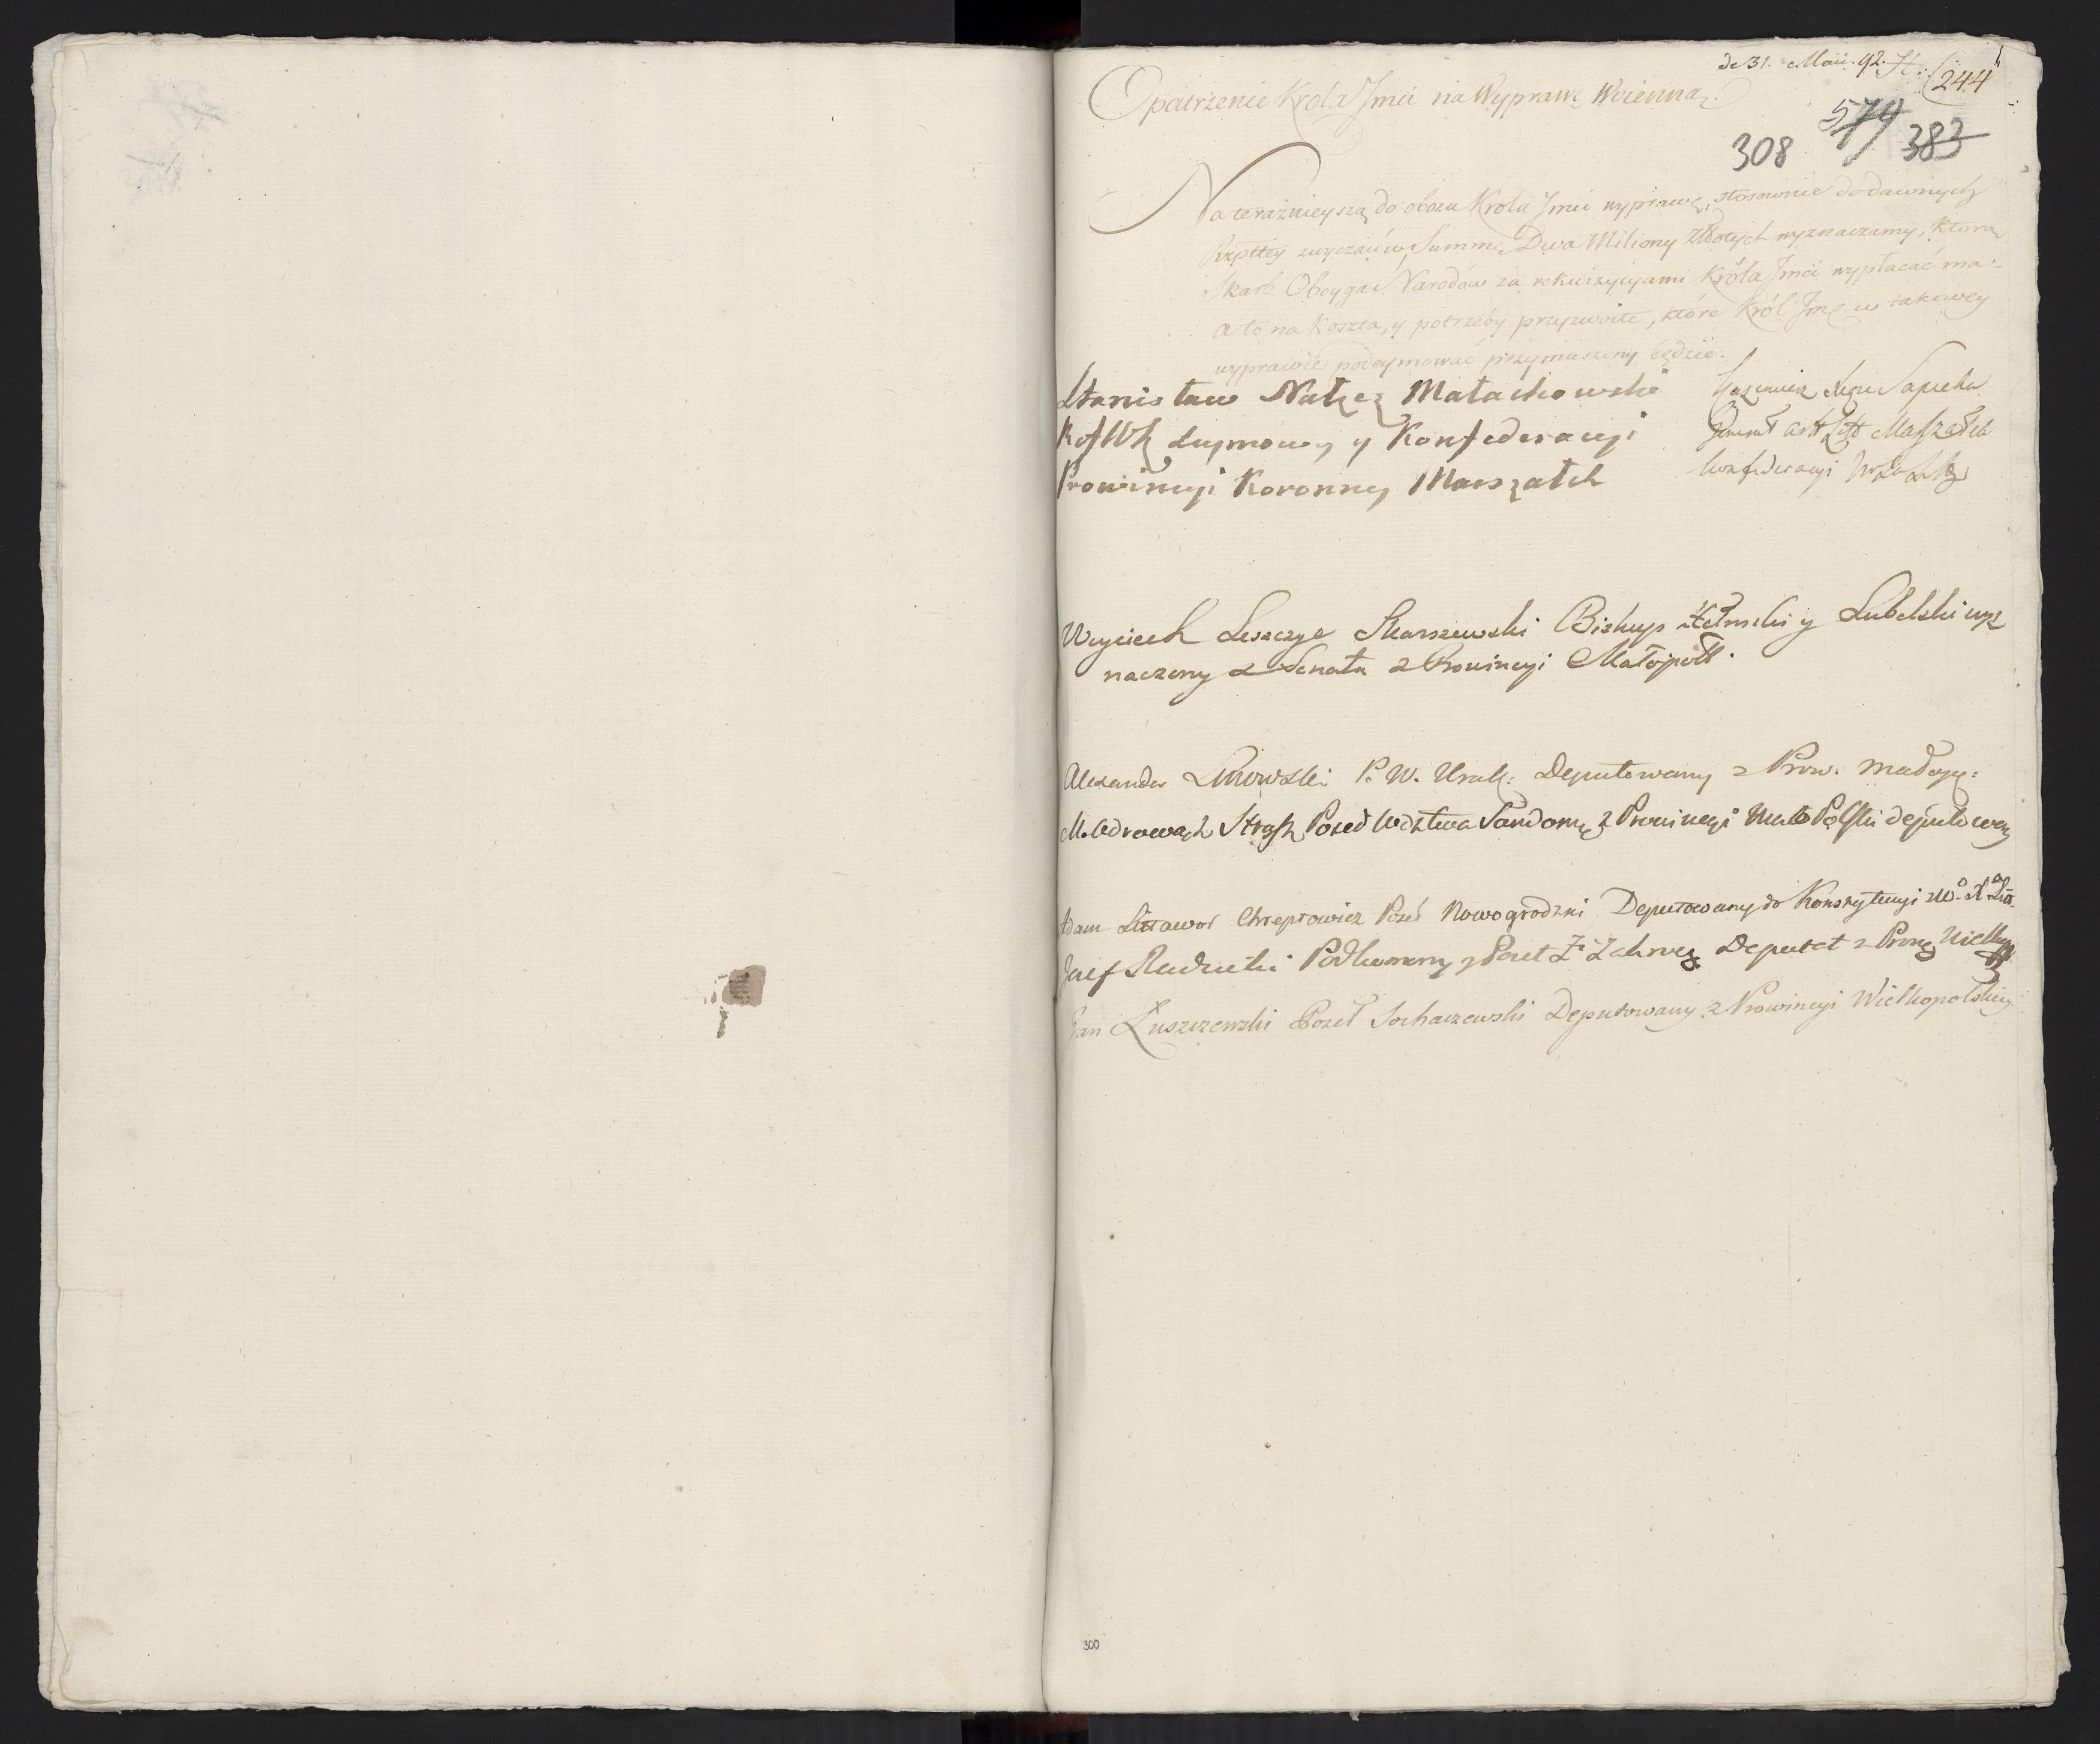 de 31. Maii. 92. H. 244
Opatrzenie Krola Jmci na Wyprawę Woienną.
308 574 383
Na teraznieyszą do obozu Krola Jmci wyprawę, stosownie do dawnych
Rzpltey zwyczaiów, Summę Dwa Miliony Złotych wyznaczamy, którą
Skarb Oboyga Narodów za rekwizycyami Króla Jmci wypłacać ma
a to na koszta, y potrzeby przyzwoite, które Król Jmć w takowey
wyprawie podeymować przymuszony będzie.
Stanisław Nałęcz Małachowski
R. W. K. Seymowy y Konfederacyi
Prowincyi Koronney Marszałek
Kazimierz Xże Sapieha
Generał Art. Litt Marszałek
Konfederacyi W. X. Lit.
Woyciech Leszczyc Skarszewski Biskup Chełmski y Lubelski wyz
naczony z Senatu z Prowincyi Małopolt.
Alexander Linowski P. W. Krak: Deputowany z Prow. Małop:
M. Odrowąż Strasz Poseł Wdztwa Sandomę z Prowincyi Mało Polski deputowany
Adam Littawor Chreptowicz Poseł Nowogrodzki Deputowany do Konstytucyi W. X. Lit.
Jozef Radzicki Podkomorzy y Poseł Z. Zakroczę Deputat z Prowę Wielkop
Jan Łuszczewski Poseł Sochaczewski Deputowany z Prowincyi Wielkopolskiey.
300